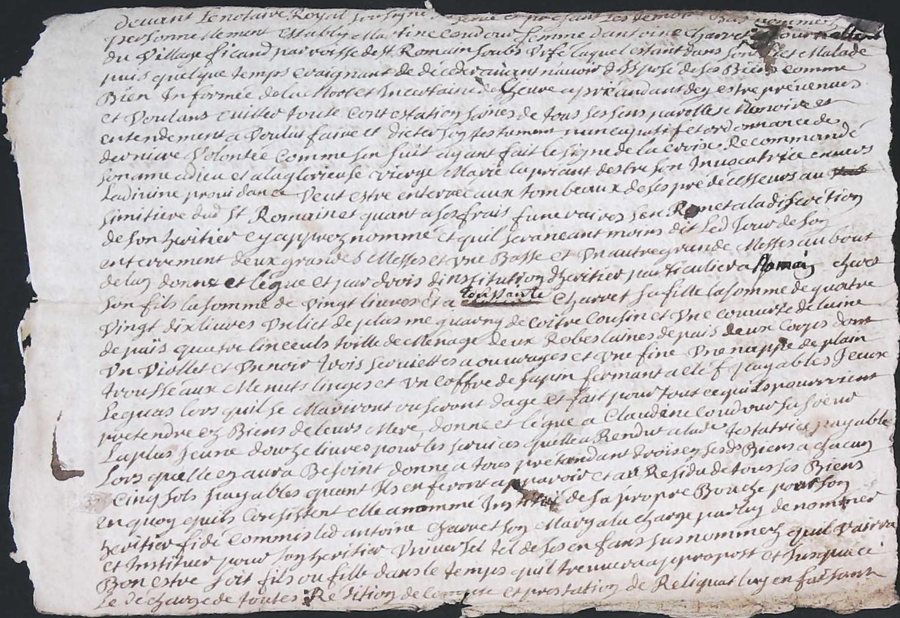 Devant le notaire Royal soussigne
personnellement Establye Martine Coudour femme d'antoine Charvet
du Village ficand parroisse de st Romain soubs Urfe laquel estant dans son Malade
puis quelque temps craignant de décéder avant n'avoir disposé de ses Biens comme
Bien Informée de la Mort et Incertaine de l'heure apreandant d'ey estre prevenue
et Voulans eviter toute Contestation saines de tous ses sens parolle Memoire et
entendement a Voulus faire et dicter son testament nuncupatif et ordonnance de
derniere Volontée Comme sen suit ayant fait le signe de la Croix Recommandé
son ame a dieu et a la glorieuse Vierge Marie la priant destre son Invocatrice envers
la divine providance Veut estre enterrée aux tombeaux de ses prédécesseurs au
simitiere dud St Romain et quant a ses frais funeraires sen Remet a la discretion
de son heritier cy apprez nommé et quil sera neantmoins dit led Jour de son
enterrement deux grandes Messes et Une Basse et Un autre grande Messes au bout
de lan donne et legue et par drois dinstitution dheritier particulier a Romain Charvet
son fils la somme de Vingt livres et a Toussante Charvet sa fille la somme de quatre
Vingt dix livres Un lict de plume quarny de Coitre Cussin et Une couverte de laine
de païs quatre linceuls toille de Menage deux Robes laines de païs deux Corps dont
Un Viollet et Un noir trois serviettes a ouvrages et Une fine Une nappe de plain
trousseaux Menuts linges et Un Coffre de sapin fermant a clef payables Iceux
leguas lors quil se Mariront ou seront dage et fait pour tout ce quils pourrient
pretendre ez Biens de leurs Mere, donne et legue a Claudine Coudour sa soeur
la plus jeune douze livres pour les services quelle a Rendue a lad testatrice payable
Lors quelle en aura Besoint donne a tous pretendant drois en sesd Biens a chacun
Cinq sols payables quant Ils en feront apparoir et au Residu de tous ses Biens
En quoy quils Consistent elle a nommé Institué de sa propre Bouche pour son
heritier fidei Commis led antoine Charvet son Mary a la charge par luy de nommer
et Instituer pour son heritier Universel tel de ses enfans susnommez quil vaira
Bon estre soit fils ou fille dans le temps quil treuvera appropost et Jusqua ce
Le décharge de toutes Redition de Compte et prestation de Reliquat luy en faisant